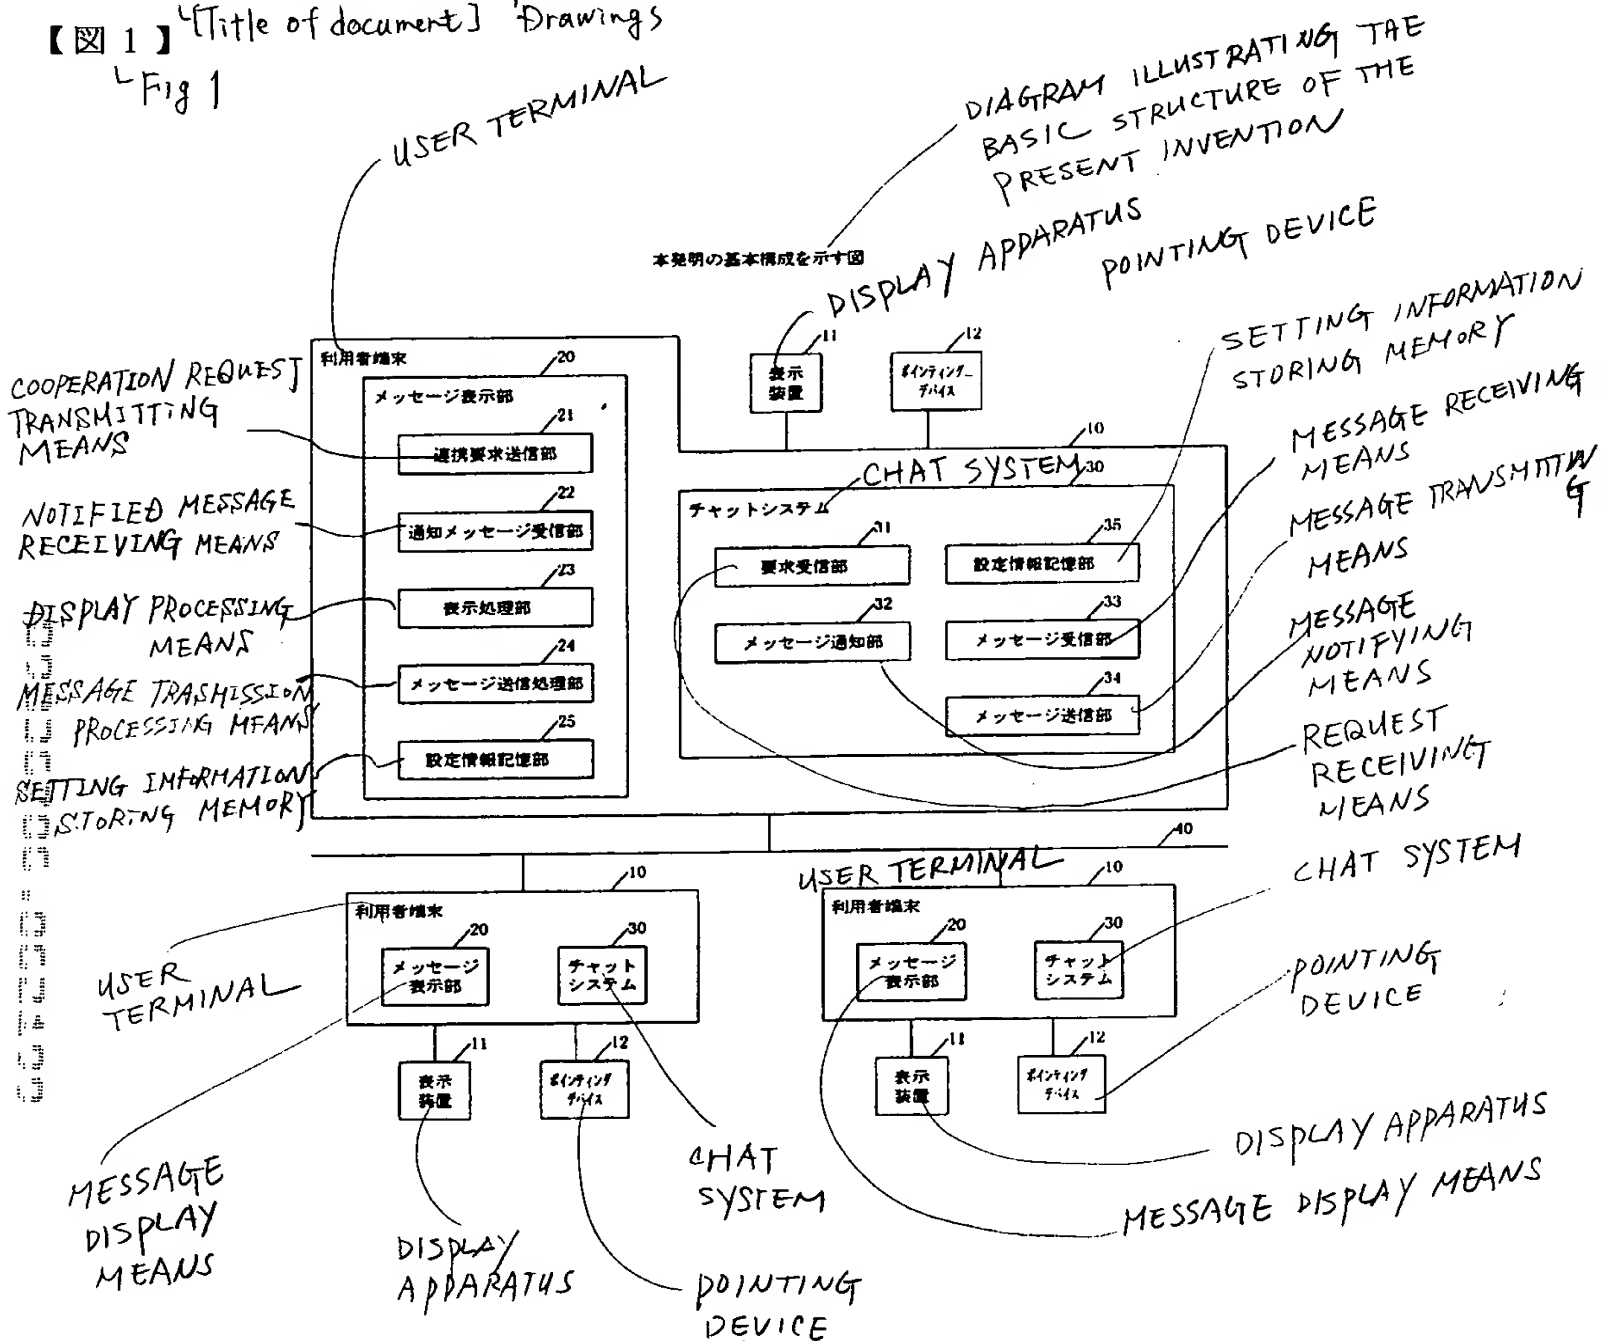 [Title of document] Drawings
【図1】
Fig 1
USER TERMINAL
DIAGRAM ILLUSTRATING TAE
BASIC STRUCTURE OF THE
PRESENT INVENTION
本発明の基本構成を示す図
DISPLAY APPARATUS
POINTING DEVICE
SETTING INFORMATION
STORING MEMORY
MESSAGE RECEIVING
MEANS
MESSAGE TRANSMITTING
MEANS
MESSAGE
NOTIFYING
MEANS
REQUEST
RECEIVING
MEANS
COOPERATION REQUEST
TRANSMITTING
MEANS
NOTIFIED MESSAGE
RECEIVING MEANS
DISPLAY PROCESSING
MEANS
MESSAGE TRASMISSION
PROCESSING MEANS
SETTING INFORMATION
STORING MEMORY
利用者端末
20
メッセージ表示部
21
連携要求送信部
22
通知メッセージ受信部
23
表示処理部
24
メッセージ送信処理部
25
設定情報記憶部
11
表示
装置
12
ポインティング
デバイス
10
CHAT SYSTEM
30
チャットシステム
31
要求受信部
35
設定情報記憶部
32
メッセージ通知部
33
メッセージ受信部
34
メッセージ送信部
40
10
利用者端末
20
メッセージ
表示部
30
チャット
システム
11
表示
装置
12
ポインティング
デバイス
USER TERMINAL
10
利用者端末
20
メッセージ
表示部
30
チャット
システム
11
表示
装置
12
ポインティング
デバイス
CHAT SYSTEM
POINTING
DEVICE
USER
TERMINAL
MESSAGE
DISPLAY
MEANS
DISPLAY
APPARATUS
CHAT
SYSTEM
POINTING
DEVICE
DISPLAY APPARATUS
MESSAGE DISPLAY MEANS